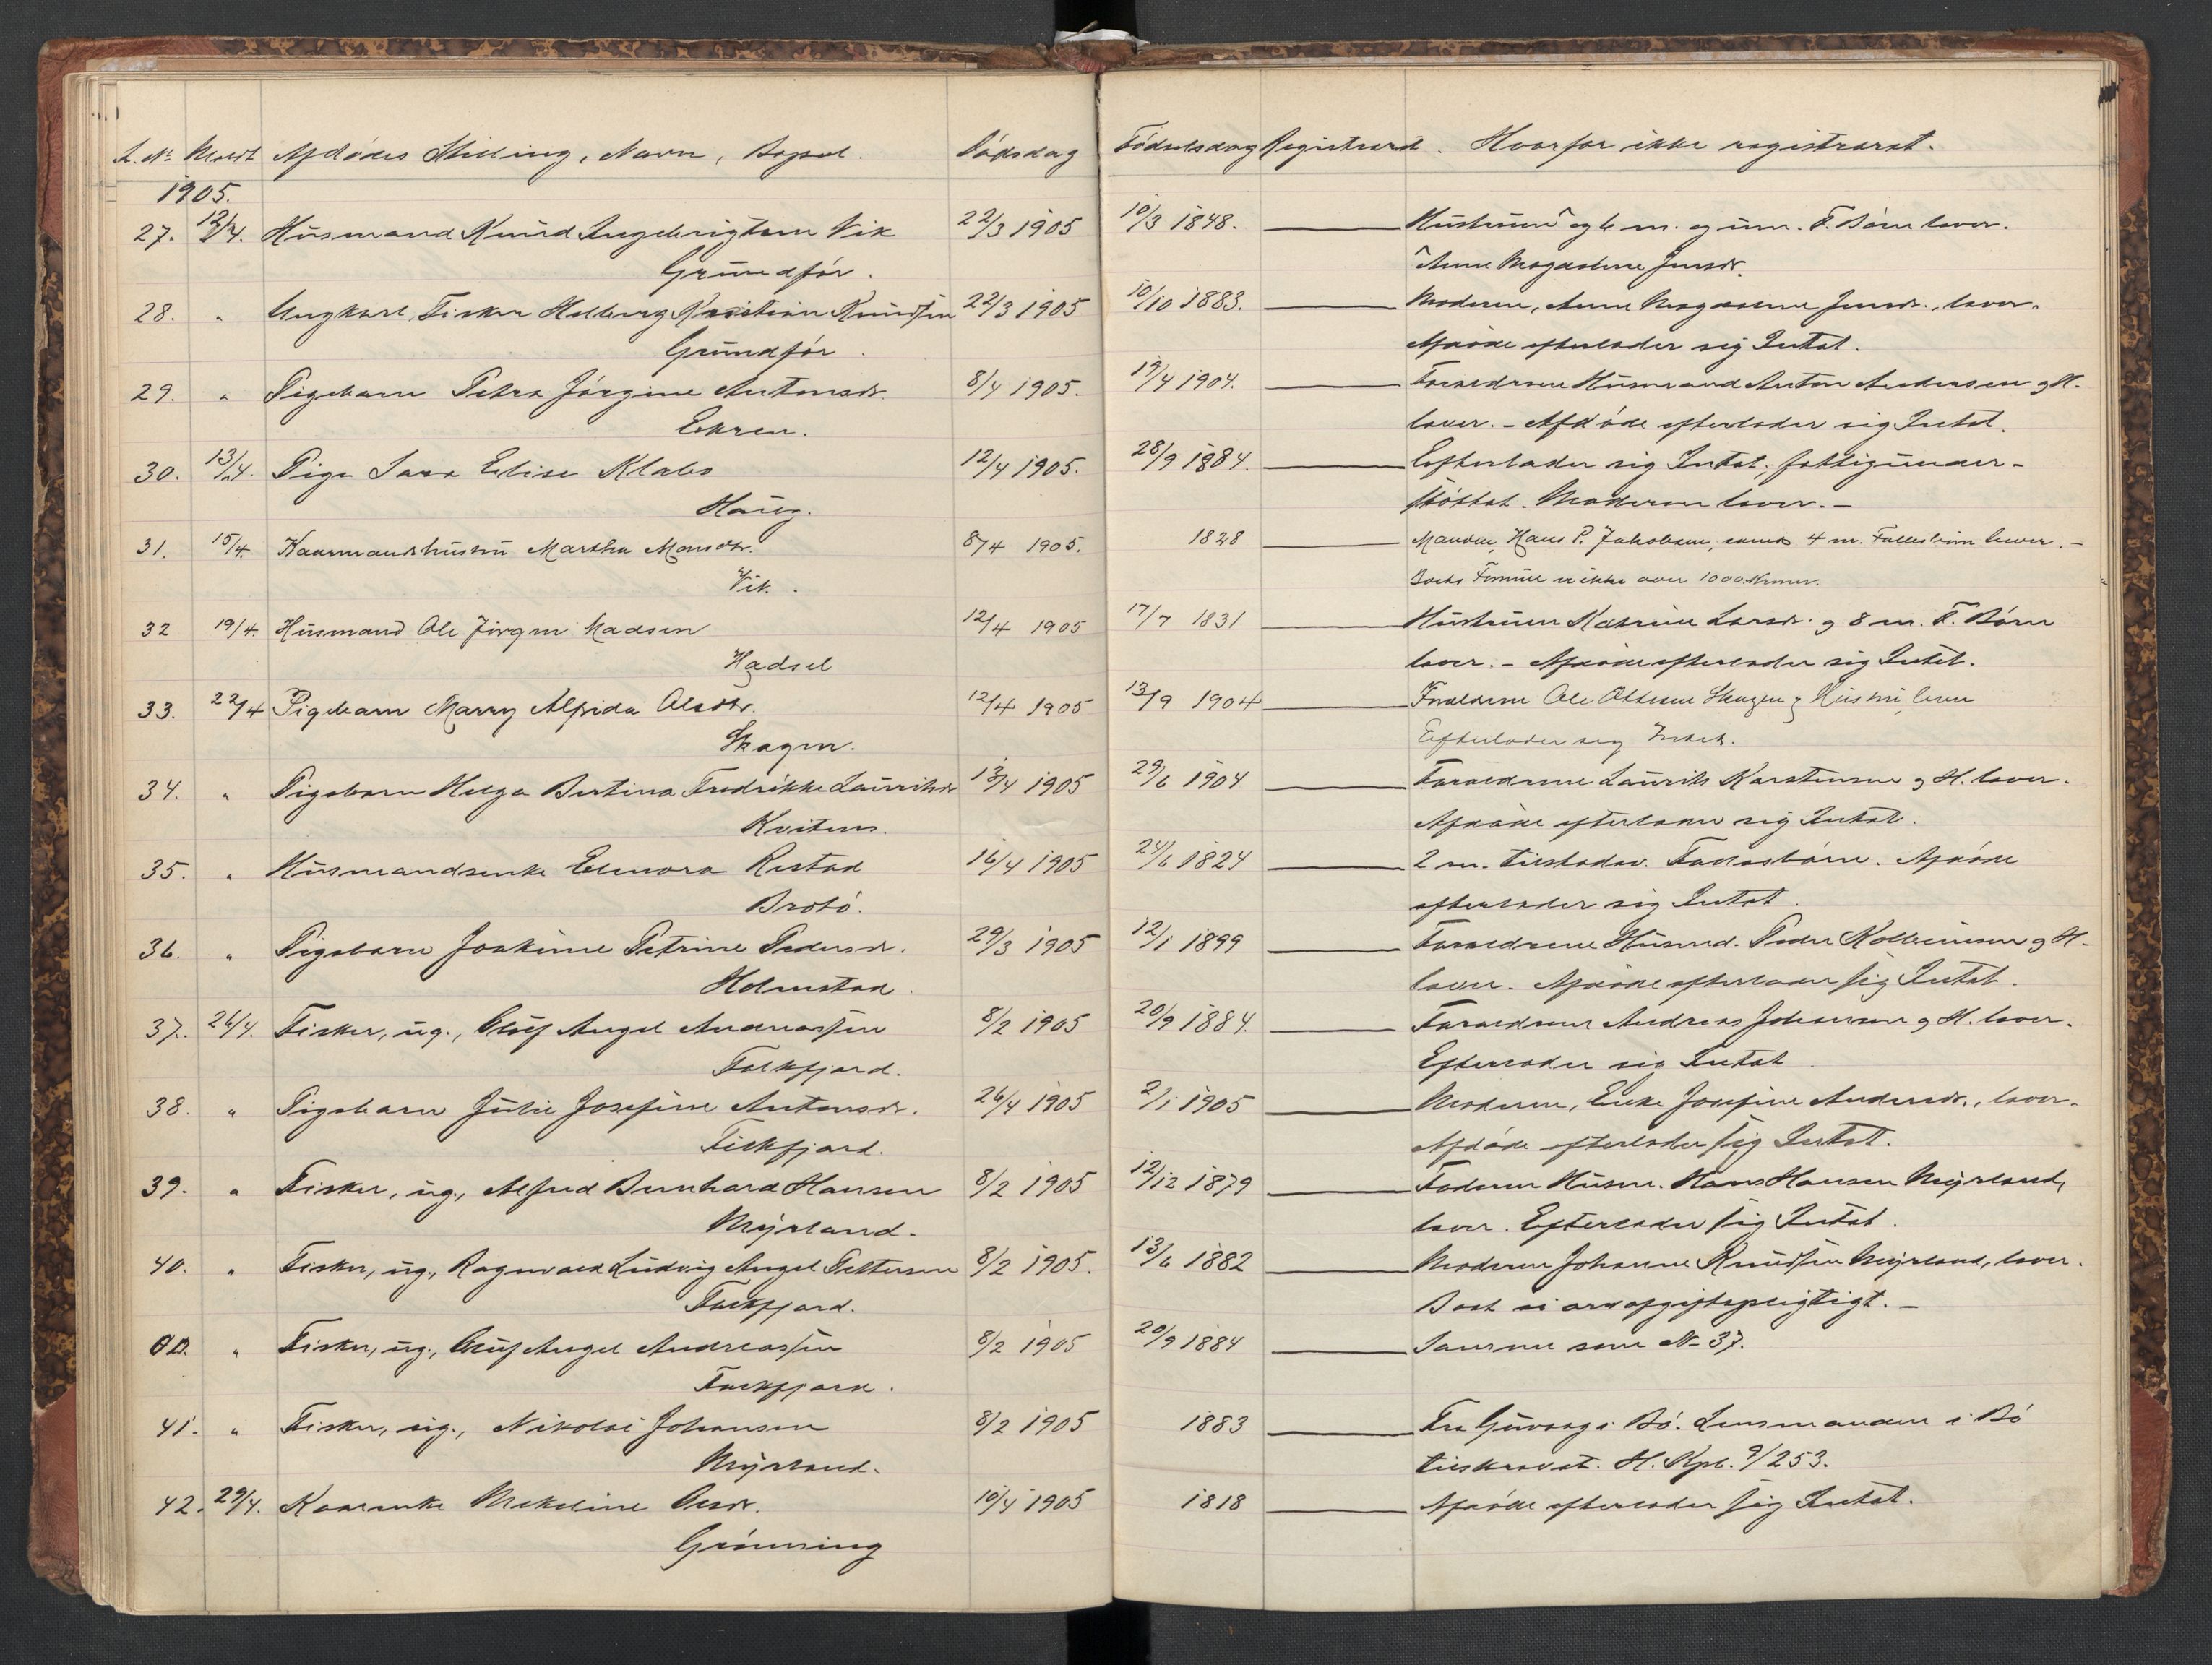 L. No Meldt Afdødes Stilling, Navn, Bopæl. Dødsdag Fødselsdag Registreret. Hvorfor ikke registreret.
1905.
27. 12/4. Husmand Knud Ingebrigtsen Vik 22/3 1905 10/3 1848. Hustruen og 6 m. og um. F. Børn lever.
Grundfør. Anne Magdalene Jensdr.
28. " Ungkarl, Fisker Hedberg Kristian Knudsen 22/3 1905 10/10 1883. Moderen, Anne Magdalene Jensdr., lever.
Grundfør. Afdøde efterlader sig Intet.
29. " Pigebarn Petra Jørgine Antonsdr. 8/4 1905. 19/4 1904. Forældrene Husmand Anton Andersen og H.
Eekren. lever. - Afdøde efterlader sig Intet.
30. 13/4. Pige Sara Elise Klabo 12/4 1905. 28/9 1884. Efterlader sig Intet; fattigunder-
Haug. støttet. Moderen lever. -
31. 15/4. Kaarmandshustru Martha Monsdtr. 8/4 1905. 1828 Manden, Hans P. Jakobsen, samt 4 m. Fællesbørn lever. -
Vik. Boets Formue er ikke over 1000 Kroner.
32 19/4. Husmand Ole Jørgen Madsen 12/4 1905 17/7 1831 Hustruen Katrine Larsdr. og 8 m. F. Børn
Hadsel lever. - Afdøde efterlader sig Intet.
33. 22/4 Pigebarn Marry Alfida Olsdtr. 12/4 1905 13/9 1904 Forældrene Ole Ottesen Skagen og Hustru lever
Skagen. Efterlader sig Intet.
34. " Pigebarn Helga Bertina Fredrikke Lauritsdr 13/4 1905 29/6 1904 Forældrene Laurits Karstensen og H. lever.
Kvitnes. Afdøde efterlader sig Intet.
35. " Husmandsenke Elenora Restad 16/4 1905 24/6 1824 2 m. tilstedev. Fællesbørn. Afdøde
Brotø. efterlader sig Intet.
36. " Pigebarn Joakime Petrine Pedersdr. 29/3 1905 12/1 1899 Forældrene Husmd. Peder Kolbeinsen og H.
Holmstad. lever. Afdøde efterlader sig Intet.
37. 26/4. Fisker, ug., Oluf Angel Andreassen 8/2 1905 20/9 1884. Forældrene Andreas Johansen og H. lever.
Falkfjord. Efterlader sig Intet
38. " Pigebarn Julie Josefine Antonsdr. 26/4 1905 2/1 1905 Moderen, Enke Josefine Andersdr., lever.
Falkfjord. Afdøde efterlader sig Intet.
39. " Fisker, ug., Alfred Bernhard Hansen 8/2 1905 12/12 1879 Faderen Husm. Hans Hansen Myrland,
Myrland. lever. Efterlader sig Intet.
40. " Fisker, ug., Ragnvald Ludvig Angel Pettersen 8/2 1905. 13/6 1882 Moderen Johanne Knudsen Myrland, lever.
Falkfjord. Boet ei arveafgiftspligtigt. -
" Fisker, ug., Oluf Angel Andreassen 8/2 1905 20/9 1884 Samme som No 37.
Falkfjord.
41. " Fisker, ug., Nikolai Johansen 8/2 1905 1883 Fra Guvaag i Bø. Lensmanden i Bø
Myrland. tilskrevet. H. Kpb. 9/253.
42. 29/4. Kaarenke Mekeline Olsdr. 10/4 1905 1818 Afdøde efterlader sig Intet.
Grønning